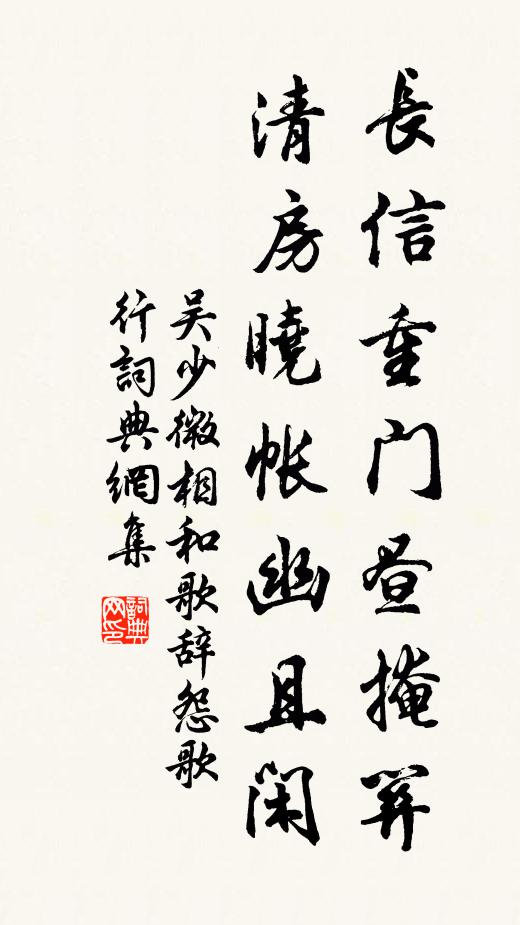 長信重门昼掩関
清房曉帐幽且闲
吴少微相和歌辞怨歌
行詞典網集
詞典
网印